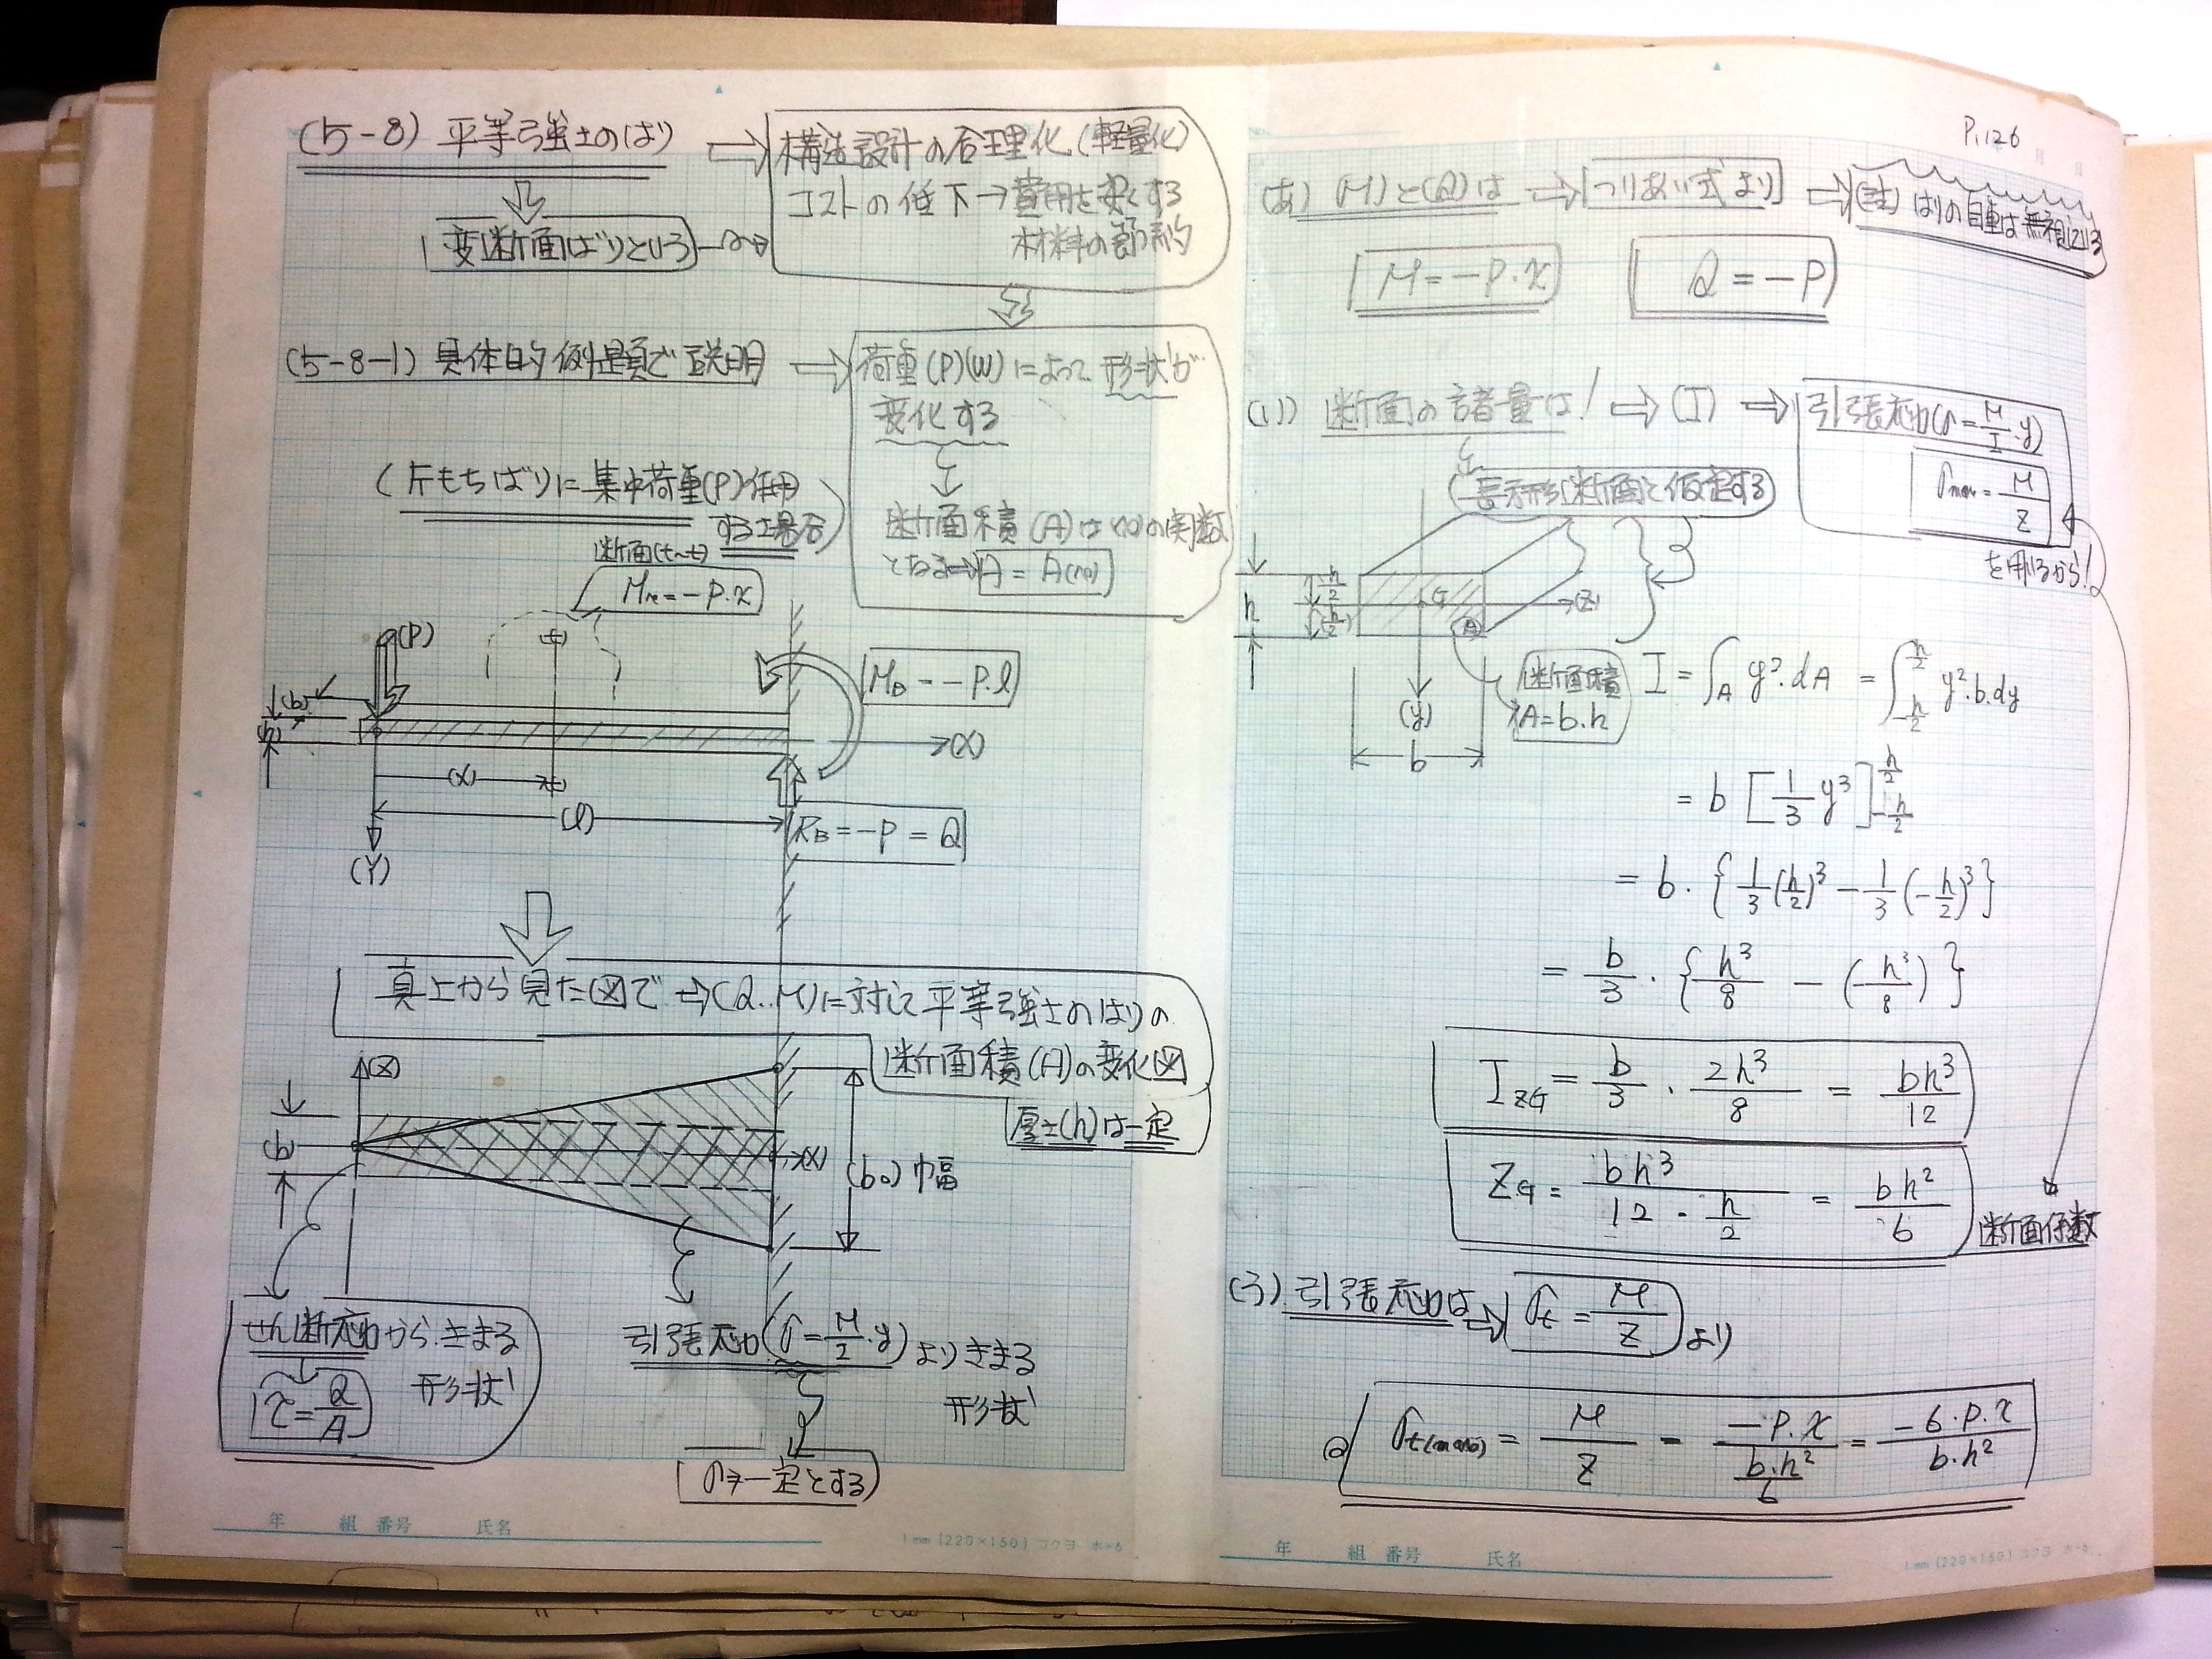 (5-8) 平等強さのはり
構造設計の合理化(軽量化)
コストの低下→費用を安くする
材料の節約
変断面ばりという
(5-8-1) 具体的例題で説明
荷重(P)(W)によって形状が
変化する
断面積(A)は(x)の関数
となる⇒A = A(x)
(片もちばりに集中荷重(P)作用
する場合)
断面(t~t)
Mx=-P.x
(P)
(t)
MB=-P.l
(b)
(h)
(X)
(x)
(t)
(l)
RB=-P=Q
(Y)
真上から見た図で→(Q..M)に対して平等強さのはりの
断面積(A)の変化図
厚さ(h)は一定
(Z)
(b)
(X)
(b0)巾幅
せん断応力からきまる
形状
τ=Q/A
引張応力(σ=M/I.y)よりきまる
形状
σを一定とする
年 組 番号 氏名
1mm(220×150) コクヨ ホ-6
P.126
(あ) (M)と(Q)は ⇒ つりあい式より ⇒ (注) はりの自重は無視している
M=-P.x
Q=-P
(い) 断面の諸量は! ⇒ (I) ⇒ 引張応力(σ=M/I.y)
σmax=M/Z
を用いるから!
長方形断面と仮定する
h/2
h
G
(Z)
(h/2)
(A)
断面積
A=b.h
(y)
b
I = ∫A y².dA = ∫-h/2 h/2 y².b.dy
= b [1/3 y³] h/2 -h/2
= b.{1/3(h/2)³-1/3(-h/2)³}
= b/3.{h³/8-(-h³/8)}
IZG=b/3.2h³/8 = bh³/12
ZG = bh³/12.h/2 = bh²/6
断面係数
(う) 引張応力は ⇒ σt=M/Z より
σt(max) = M/Z = -P.x/b.h²/6 = -6.P.x/b.h²
年 組 番号 氏名
1mm(220×150) コクヨ ホ-6